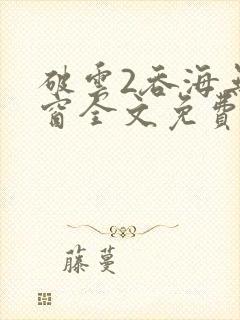 破雲2吞海無
窗全文免費
藤蔓